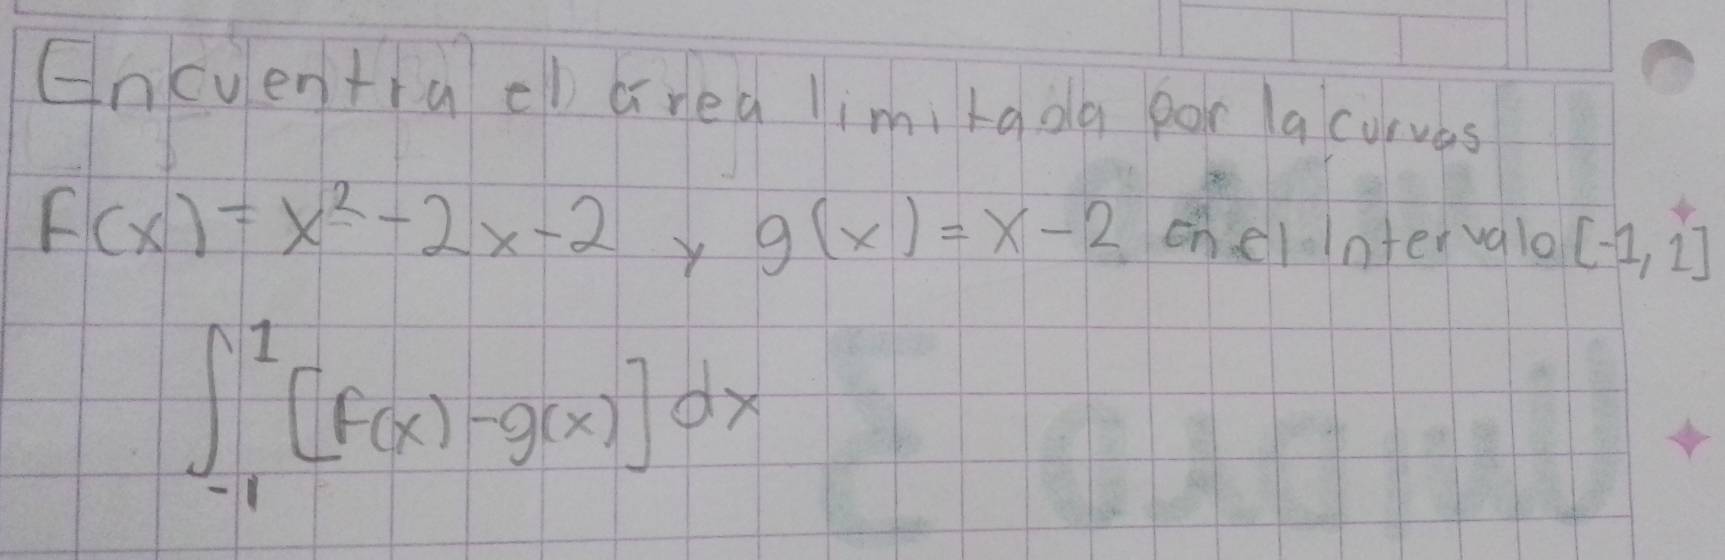 Encuentra el área limitada por la curvas
F(x) = x² - 2x - 2 y g(x) = x - 2 en el Intervalo [-1, 1]
∫₋₁¹ [f(x) - g(x)] dx